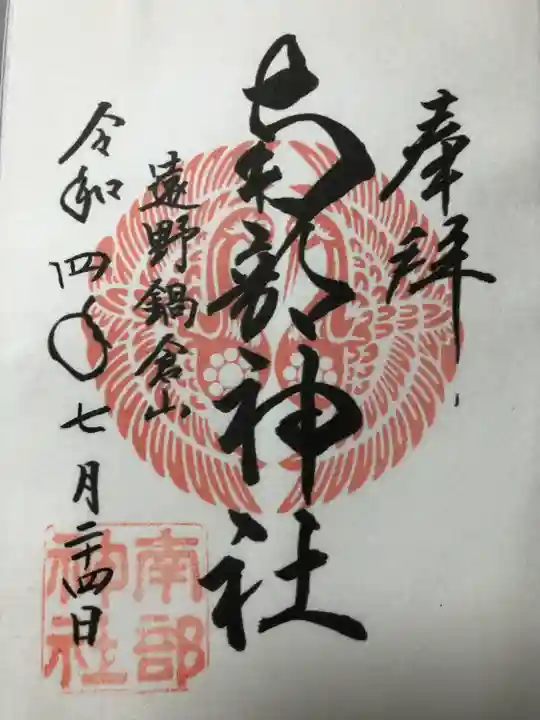 奉拝
南部神社
遠野鍋倉山
令和四年七月二十四日
南部
神社